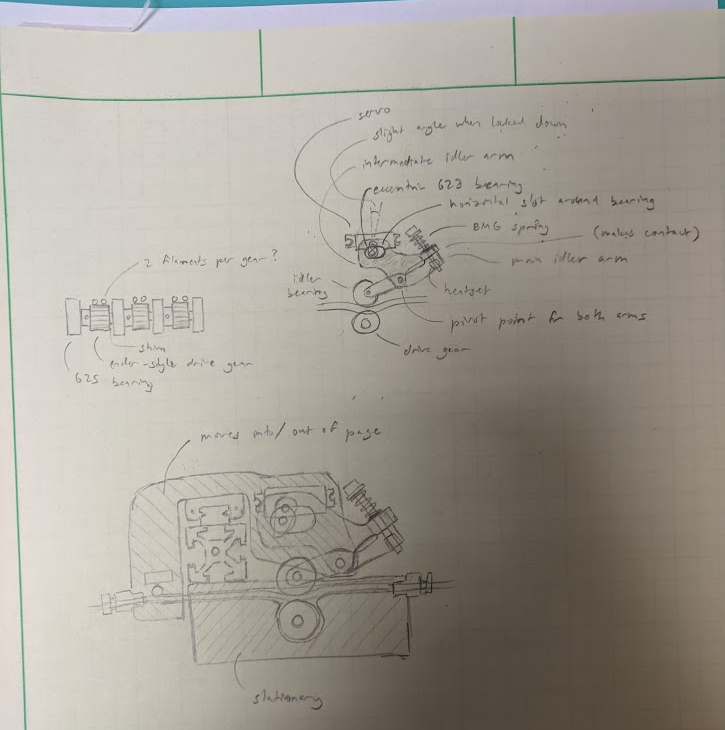 servo
slight angle when locked down
intermediate idler arm
eccentric 623 bearing
horizontal slot around bearing
BMG spring
(makes contact)
main idler arm
2 filaments per gear?
idler
bearing
heatset
pivot point for both arms
shim
drive gear
ender-style drive gear
625 bearing
moves into/out of page
stationary